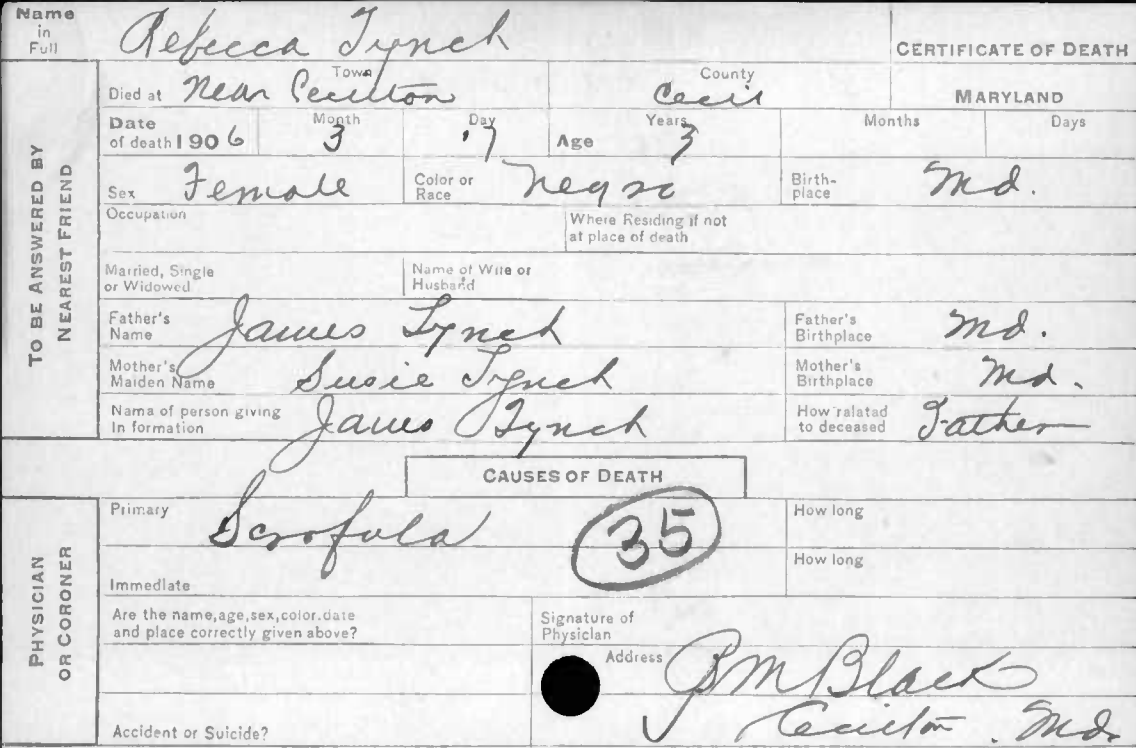 Name in Full Rebecca Lynch
CERTIFICATE OF DEATH
Died at Near Cecilton Town Cecil County
MARYLAND
Date of death 1906 Month 3 Day 17 Age Years 3 Months Days
Sex Female Color or Race Negro Birth-place Md.
Occupation Where Residing if not at place of death
Married, Single or Widowed Name of Wife or Husband
Father's Name James Lynch Father's Birthplace Md.
Mother's Maiden Name Susie Lynch Mother's Birthplace Md.
Name of person giving In formation James Lynch How ralatad to deceased Father
TO BE ANSWERED BY NEAREST FRIEND
CAUSES OF DEATH
Primary Scrofula 35 How long
Immediate How long
Are the name,age,sex,color.date and place correctly given above?
Signature of Physician
Address BM Black
Cecilton. Md.
Accident or Suicide?
PHYSICIAN OR CORONER